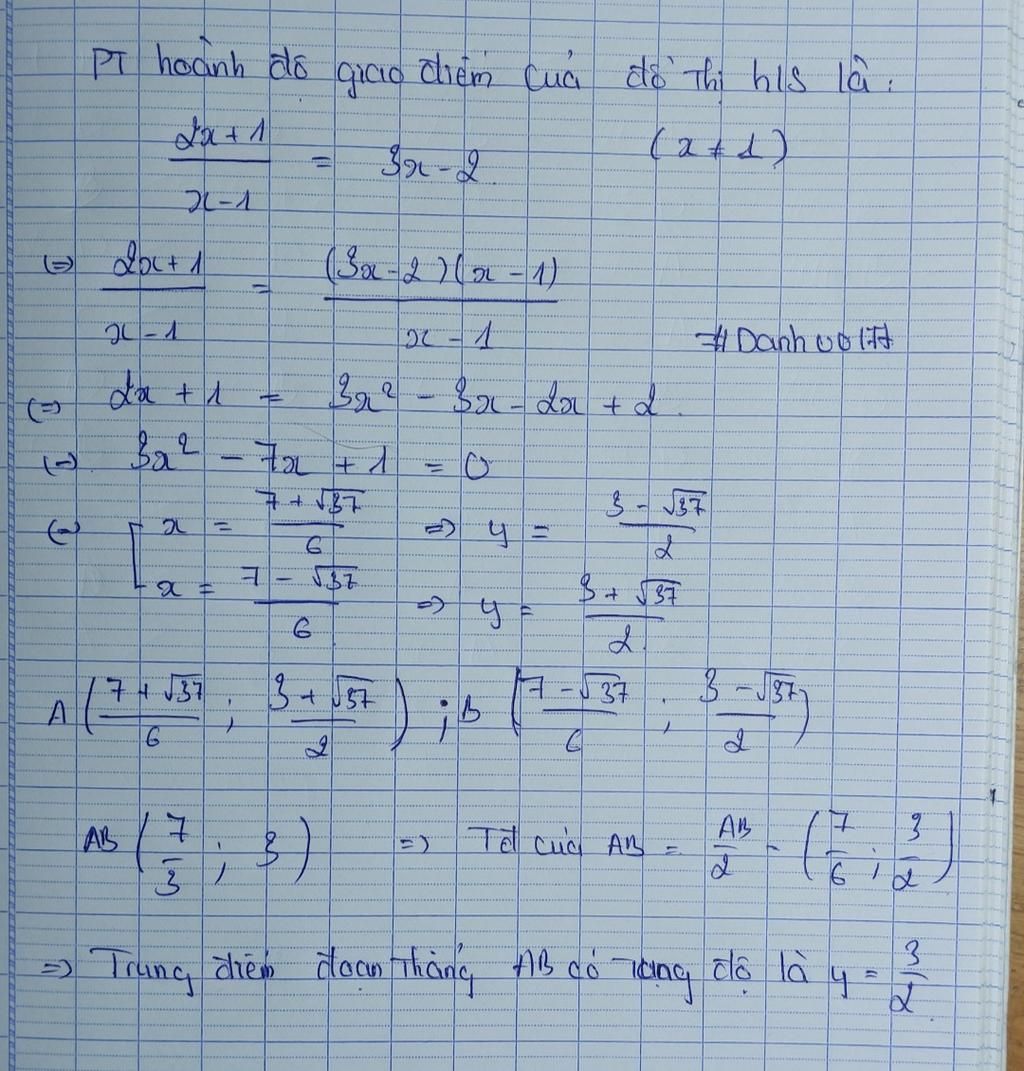 PT hoành độ giao điểm của đồ thị h/s là:
(2x+1)/(x-1) = 3x-2 (x ≠ 1)
(=) (2x+1)/(x-1) = ((3x-2)(x-1))/(x-1)
#Danh
(=) 2x + 1 = 3x² - 3x - 2x + 2
(=) 3x² - 7x + 1 = 0
(=) [ x = (7+√37)/6 => y = (3-√37)/2
x = (7-√37)/6 => y = (3+√37)/2
A ((7+√37)/6 ; (3+√37)/2) ; B ((7-√37)/6 ; (3-√37)/2)
AB (7/3 ; 3) => Tđ của AB = AB/2 - (7/6 ; 3/2)
=> Trung điểm đoạn thẳng AB có tung độ là y = 3/2